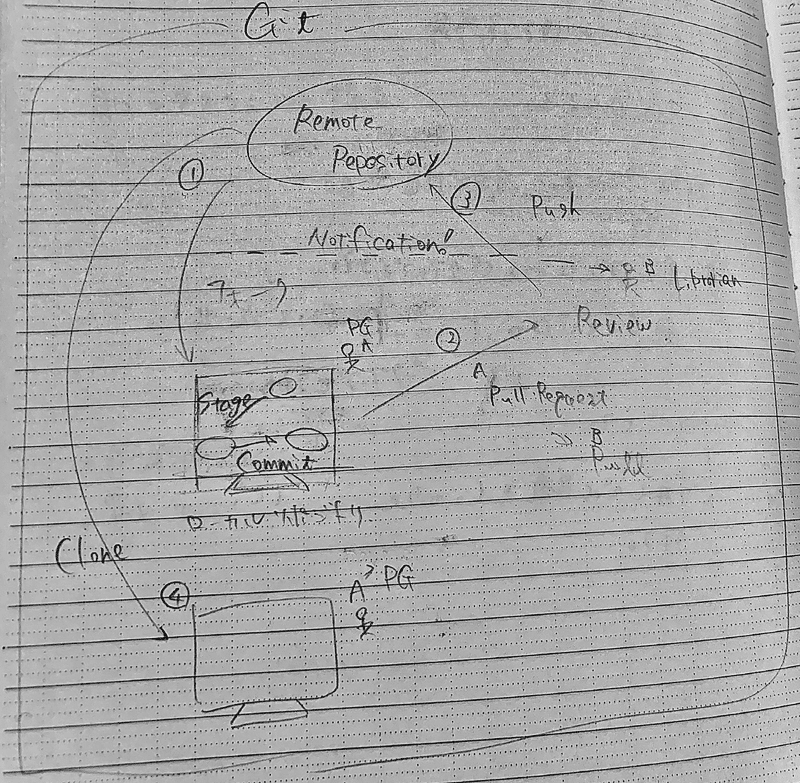 Git
Remote
Repository
①
③
Push
Notification!
フォーク
B
Librarian
PG
A
②
Review
A
Pull Request
Stage
B
Commit
ローカルリポジトリ
Clone
④
A' PG